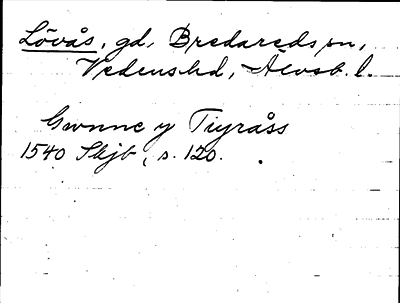 Lövås, gd, Bredareds sn,
Vedens hd, Älvsb. l.
Gunne y Tiyråss
1540 Skjb, s. 120.